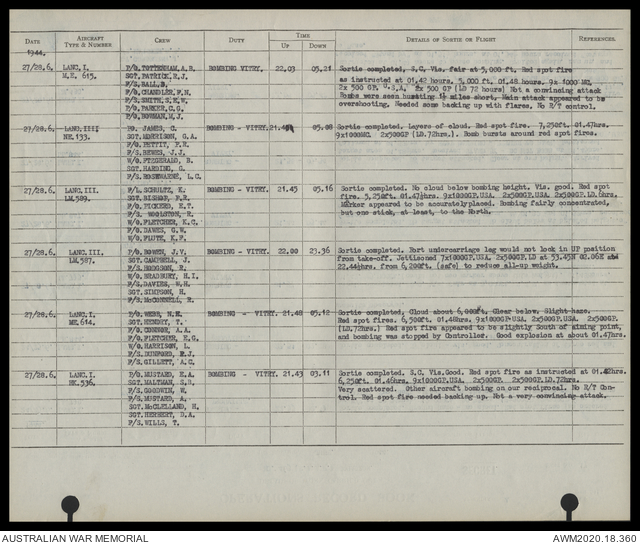 DATE AIRCRAFT TYPE & NUMBER CREW DUTY TIME UP DOWN DETAILS OF SORTIE OR FLIGHT REFERENCES.
1944.
27/28.6. LANC, I. P/O. TOTTENHAM, A.B. BOMBING VITRY. 22.03 05.21 Sortie completed, S.C, Vis. fair at 5,000 ft. Red spot fire
M.E. 615. SGT. PATRICK, R.J. as instructed at 01.42 hours. 5,000 ft. 01.48 hours. 9x 1000 MC,
F/S. BALL, 2x 500 GP. U.S.A, 2x 500 GP (LD 72 hours) Not a convincing attack
F/O. CHANDLER, F.N. Bombs were seen bursting 1½ miles short, Main attack appeared to be
F/S. SMITH, S.H.W. overshooting. Needed some backing up with flares, No R/T control.
P/O. PARKER, C.G.
F/O. BOWMAN, M.J.
27/28.6. LANC. IIII PO. JAMES, C. BOMBING - VITRY. 21.49 05.08 Sortie completed. Layers of cloud. Red spot fire. 7,250ft. 01.47hrs.
NE.133. SGT. MORRISON, G.A. 9x1000MC. 2x500GP (LD.72hrs.). Bomb bursts around red spot fires.
F/O. PETTIT, F.R.
F/S. BEWES, J.J.
W/O. FITGERALD, B.
SGT. HARDING, G.
F/S. ROSEWARNE, L.C.
27/28.6. LANC. III. F/L. SCHULTZ, K. BOMBING - VITRY. 21.45 05.16 Sortie completed. No cloud below bombing height. Vis. good. Red spot
LM.589. SGT. BISHOP, F.R. fire. 5,250ft. 01.47½hrs. 9x1000GP.USA. 2x500GP.USA. 2x500GP.LD.6hrs.
F/O. PICKERD, R.T. Marker appeared to be accuratelyplaced. Bombing fairly concentrated,
F/S. WOOLSTON, R. but one stick, at least, to the North.
W/O. FLETCHER, K.C.
F/O. DAWES, G.W.
W/O. FLUTE, K.F.
27/28.6. LANC, III. F/O. BOWEN, J.V. BOMBING - VITRY. 22.00 23.36 Sortie completed. Port undercarriage leg would not lock in UP position
LM.587. SGT. CAMPBELL, J. from take-off. Jettisoned 7x1000GP.USA. 2x500GP.LD at 53.45N 02.06E at
F/S. HODGSON, R. 22.44½hrs. from 6,200ft. (safe) to reduce all-up weight.
W/O. BRADBURY, H.I.
F/S. DAVIES, W.H.
SGT. SIMPSON, H.
F/S. McCONNELL, R.
27/28.6. LANC, I. F/O. WEBB, BOMBING - VITRY. 21.48 05.12 Sortie completed, Cloud about 6,000ft. Clear below. Slight haze.
ME.614. SGT. HENDRY, T. Red spot fires. 6,500ft. 01.48hrs. 9x1000GP.USA. 2x500GP.USA. 2x500GP
F/O. CONNOR, A.A. (LD.72hrs.) Red spot fire appeared to be slightly South of aiming point,
F/O. FLETCHER, E.G. and bombing was stopped by Controller. Good explosion at about 01.47hrs.
W/O. HARRISON, L.
F/S. DUNFORD, R.J.
F/S. GILLETT, A.C.
27/28.6. LANC, I. F/O. MUSTARD, K.A. BOMBING - VITRY. 21.43 03.11 Sortie completed. S.C. Vis.Good. Red spot fire as instructed at 01.42hrs.
HK.536. SGT. WALTMAN, S.B. 6,250ft. 01.46hrs. 9x1000GP.USA. 2x500GP. 2x500GP.LD.72hrs.
F/S. GOODWIN, W. Very scattered. Other aircraft bombing on our reciprocal. No R/T Con-
F/S. MUSTARD, A. trol. Red spot fire needed backing up. Not a very convincing attack.
SGT. McCLELLAND, H.
SGT. HERBERT, D.A.
F/S. WILLS, T.
AUSTRALIAN WAR MEMORIAL AWM2020.18.360